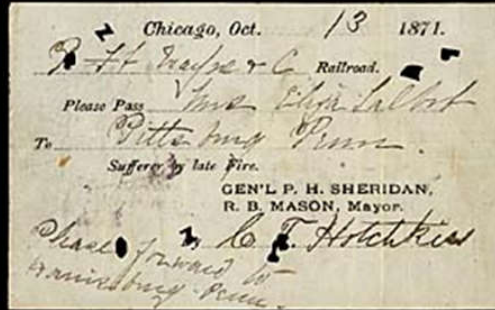 Chicago, Oct. 13 1871.
P. Ft Wayne & C Railroad.
Please Pass Mrs Eliza Talbot
To Pittsburg Penn.
Sufferer by late Fire.
GEN'L P. H. SHERIDAN,
R. B. MASON, Mayor.
C. T. Hotchkiss
Please forward to
Harrisburg Penn.